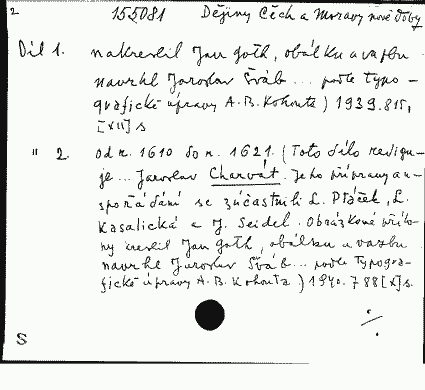 2 155081 Dějiny Čech a Moravy nové doby
Díl 1. nakreslil Jan Goth, obálku a vazbu
navrhl Jaroslav Šváb ... podle typo-
grafické úpravy A. B. Kohouta) 1939. 815,
[XII] s
" 2. Od r. 1610 do r. 1621. (Toto dílo redigu-
je ... Jaroslav Charvát. Jeho přípravy a u-
spořádání se zúčastnili L. Ptáček, L.
Kasalická a J. Seidel. Obrázkové přílo-
hy kreslil Jan Goth, obálku a vazbu
navrhl Jaroslav Šváb ... podle typogra-
fické úpravy A. B. Kohouta) 1940. 788 [X] s.
./.
S